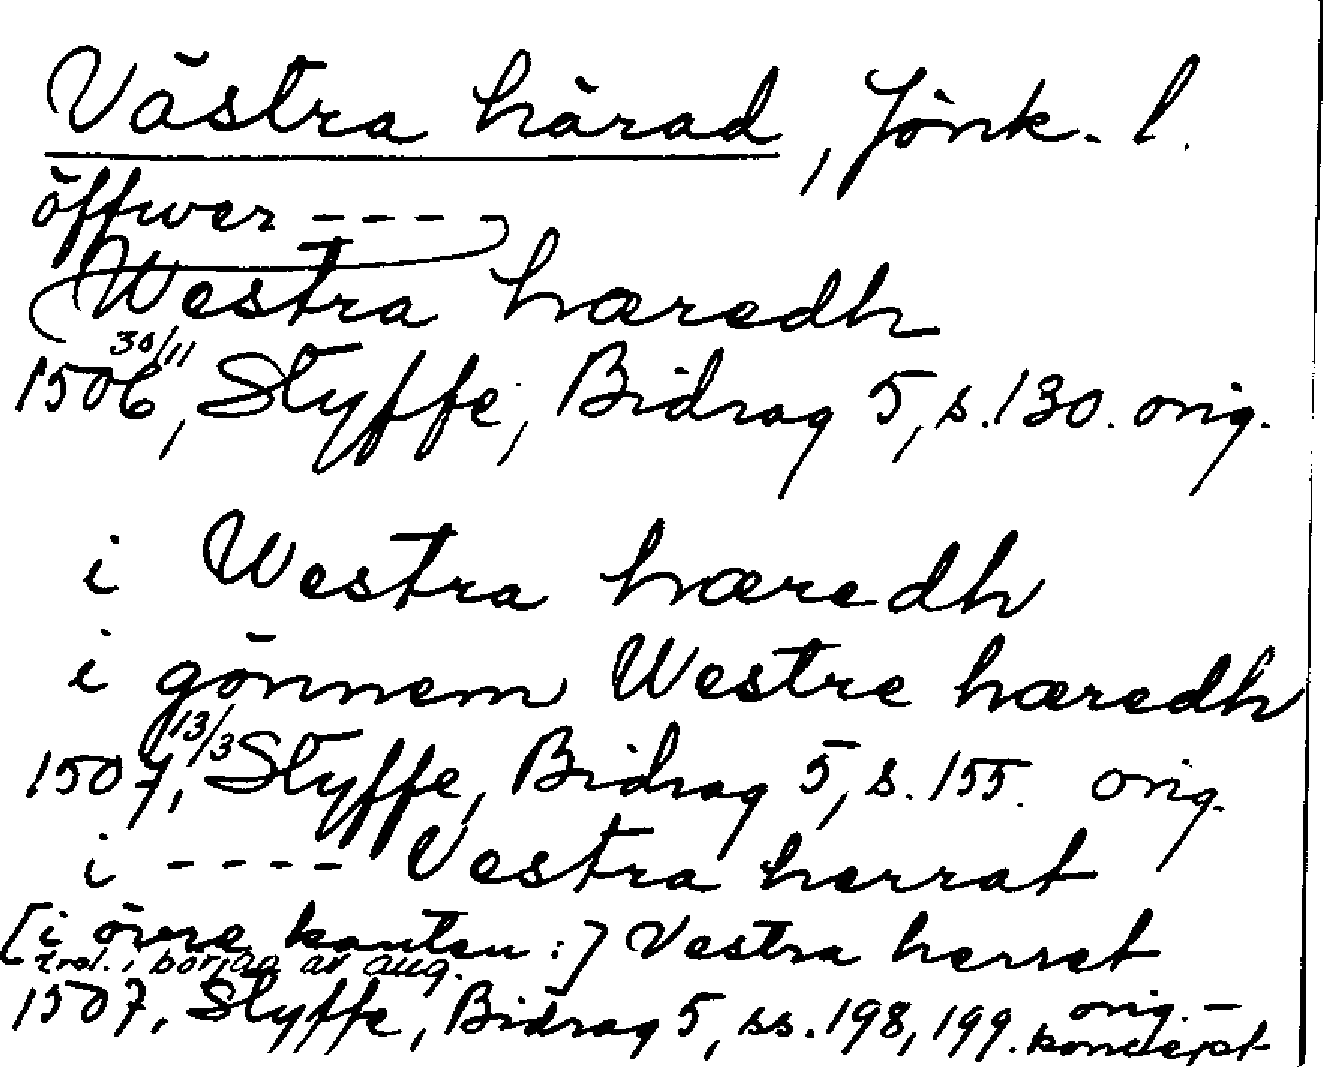 Västra härad, Jönk. l.
öffwer ----
Westra hæredh
30/11
1506, Styffe, Bidrag 5, s. 130. orig.
i Westra hæredh
i gönnem Westre hæredh
13/3
1507, Styffe, Bidrag 5, s. 155. orig.
i ---- Vestra herrat
[i övre kanten:] Vestra herret
trol. i början av aug.
1507, Styffe, Bidrag 5, ss. 198, 199. orig.-
koncept